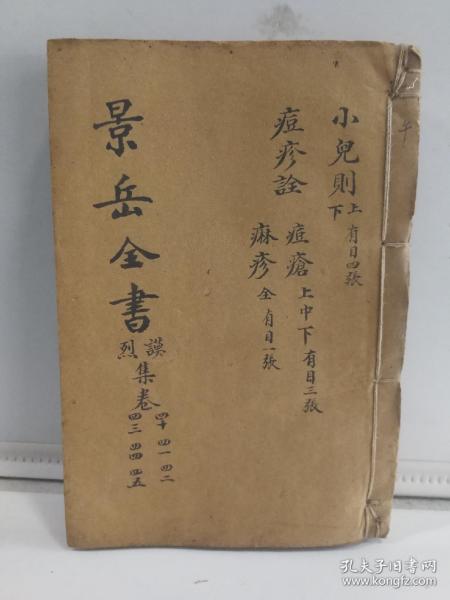 小兒則 上下 有目四張
痘疹詮
痘瘡 上中下 有目三張
痳疹 全 有目一張
景岳全書
謨烈集卷
四十 四一 四二
四三 四四 四五
孔夫子旧书网
www.kongfz.com